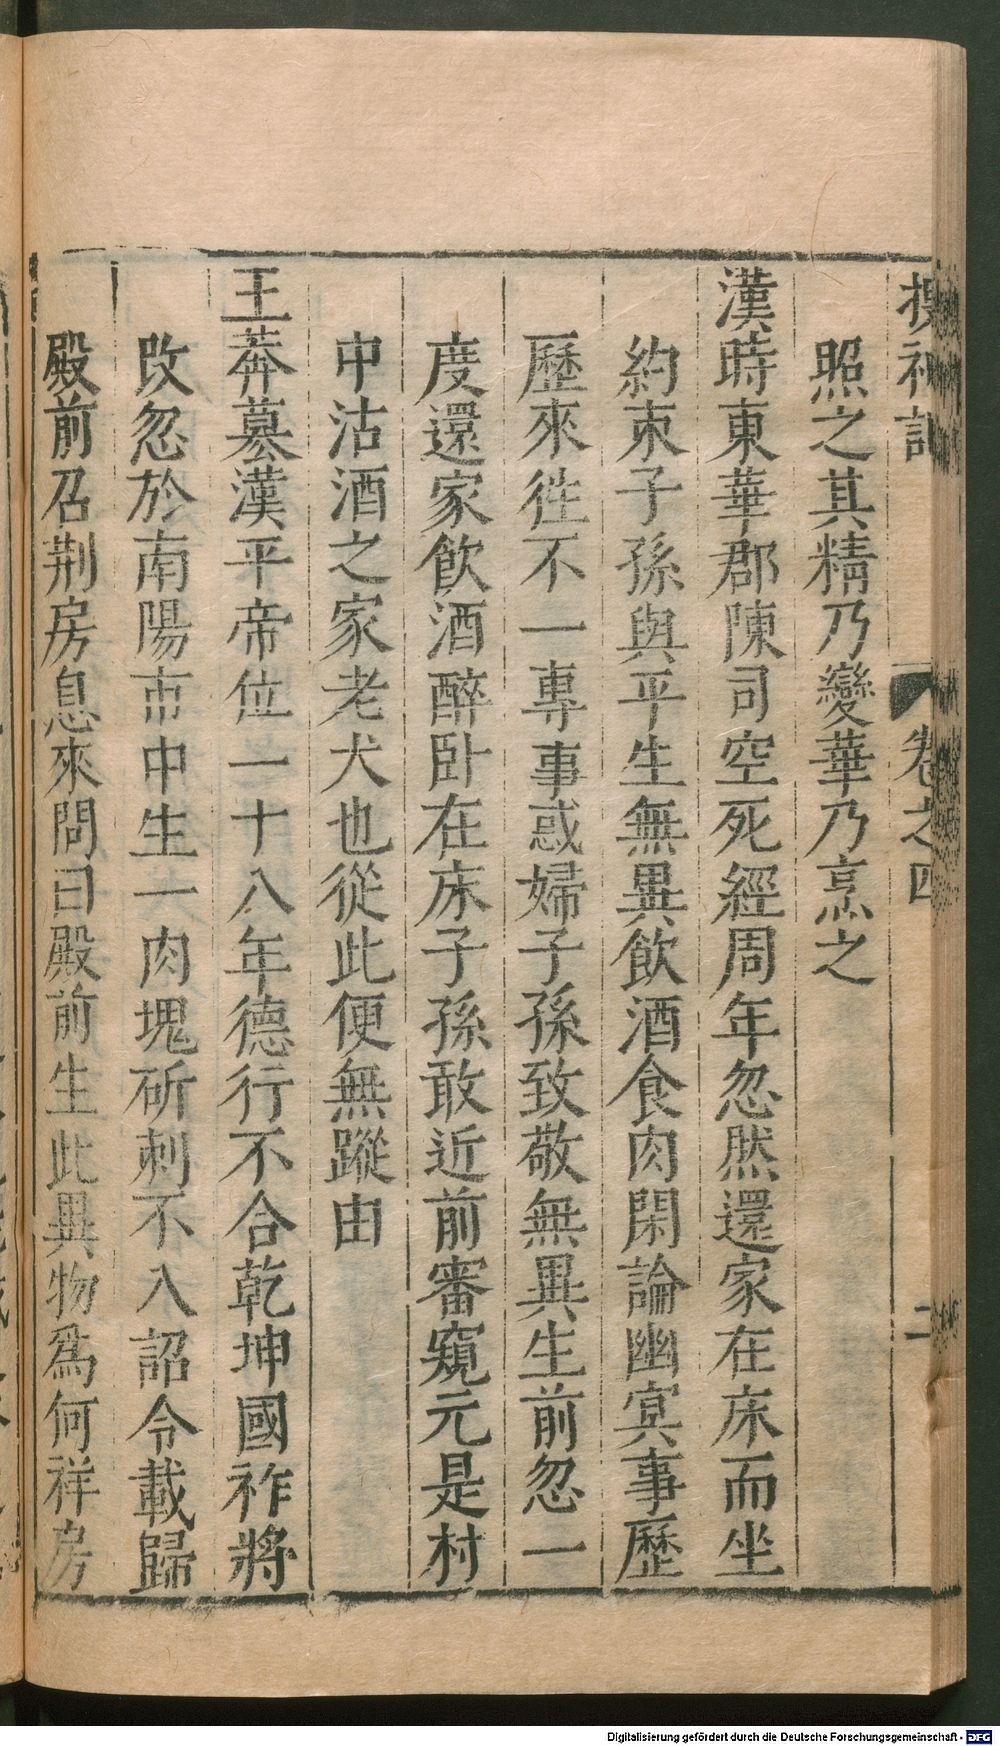 搜神記 卷之四 二
照之其精乃變華乃烹之
漢時東華郡陳司空死經周年忽然還家在床而坐
約束子孫與平生無異飲酒食肉閑論幽冥事歷
歷來徃不一專事惑婦子孫致敬無異生前忽一
度還家飲酒醉臥在床子孫敢近前審窺元是村
中沽酒之家老犬也從此便無蹤由
王莽墓漢平帝位一十八年德行不合乾坤國祚將
改忽於南陽市中生一肉塊斫刺不入詔令載歸
殿前召荆房息來問曰殿前生此異物爲何祥房
Digitalisierung gefördert durch die Deutsche Forschungsgemeinschaft - DFG